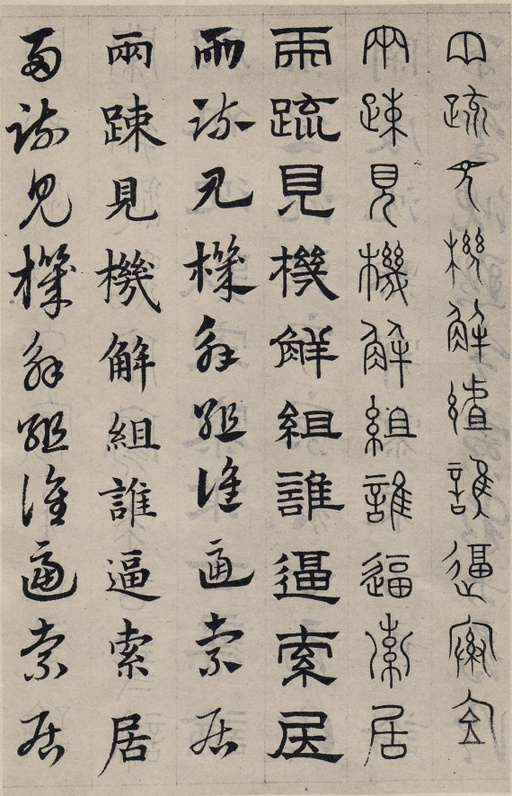 兩疏見機解組誰逼索居
兩踈見機解組誰逼索居
兩疏見機解組誰逼索居
兩疏見機解組誰逼索居
兩踈見機解組誰逼索居
兩疏見機解組誰逼索居